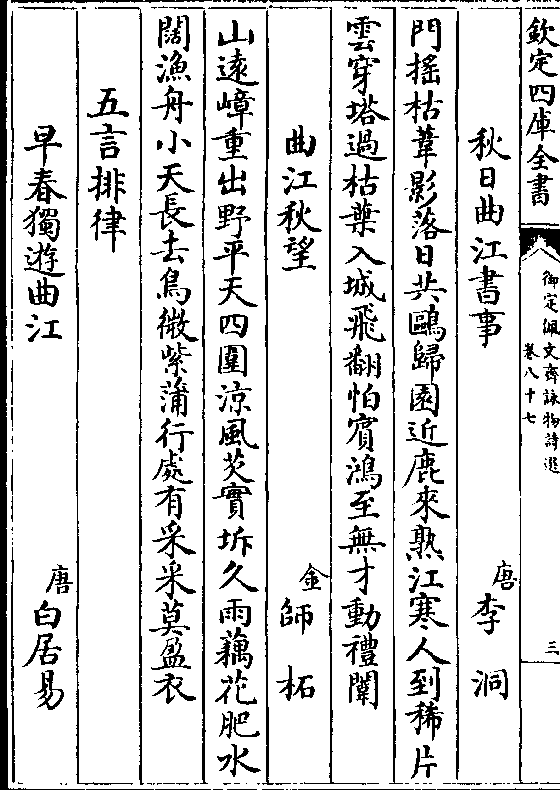 欽定四庫全書
御定佩文齋詠物詩選
卷八十七
三
秋日曲江書事
唐 李洞
門搖枯葦影落日共鷗歸園近鹿來熟江寒人到稀片
雲穿塔過枯葉入城飛翻怕賓鴻至無才動禮闈
曲江秋望
金 師柘
山遠嶂重出野平天四圍涼風芡實坼久雨藕花肥水
闊漁舟小天長去鳥微紫蒲行處有采采莫盈衣
五言排律
早春獨遊曲江
唐 白居易